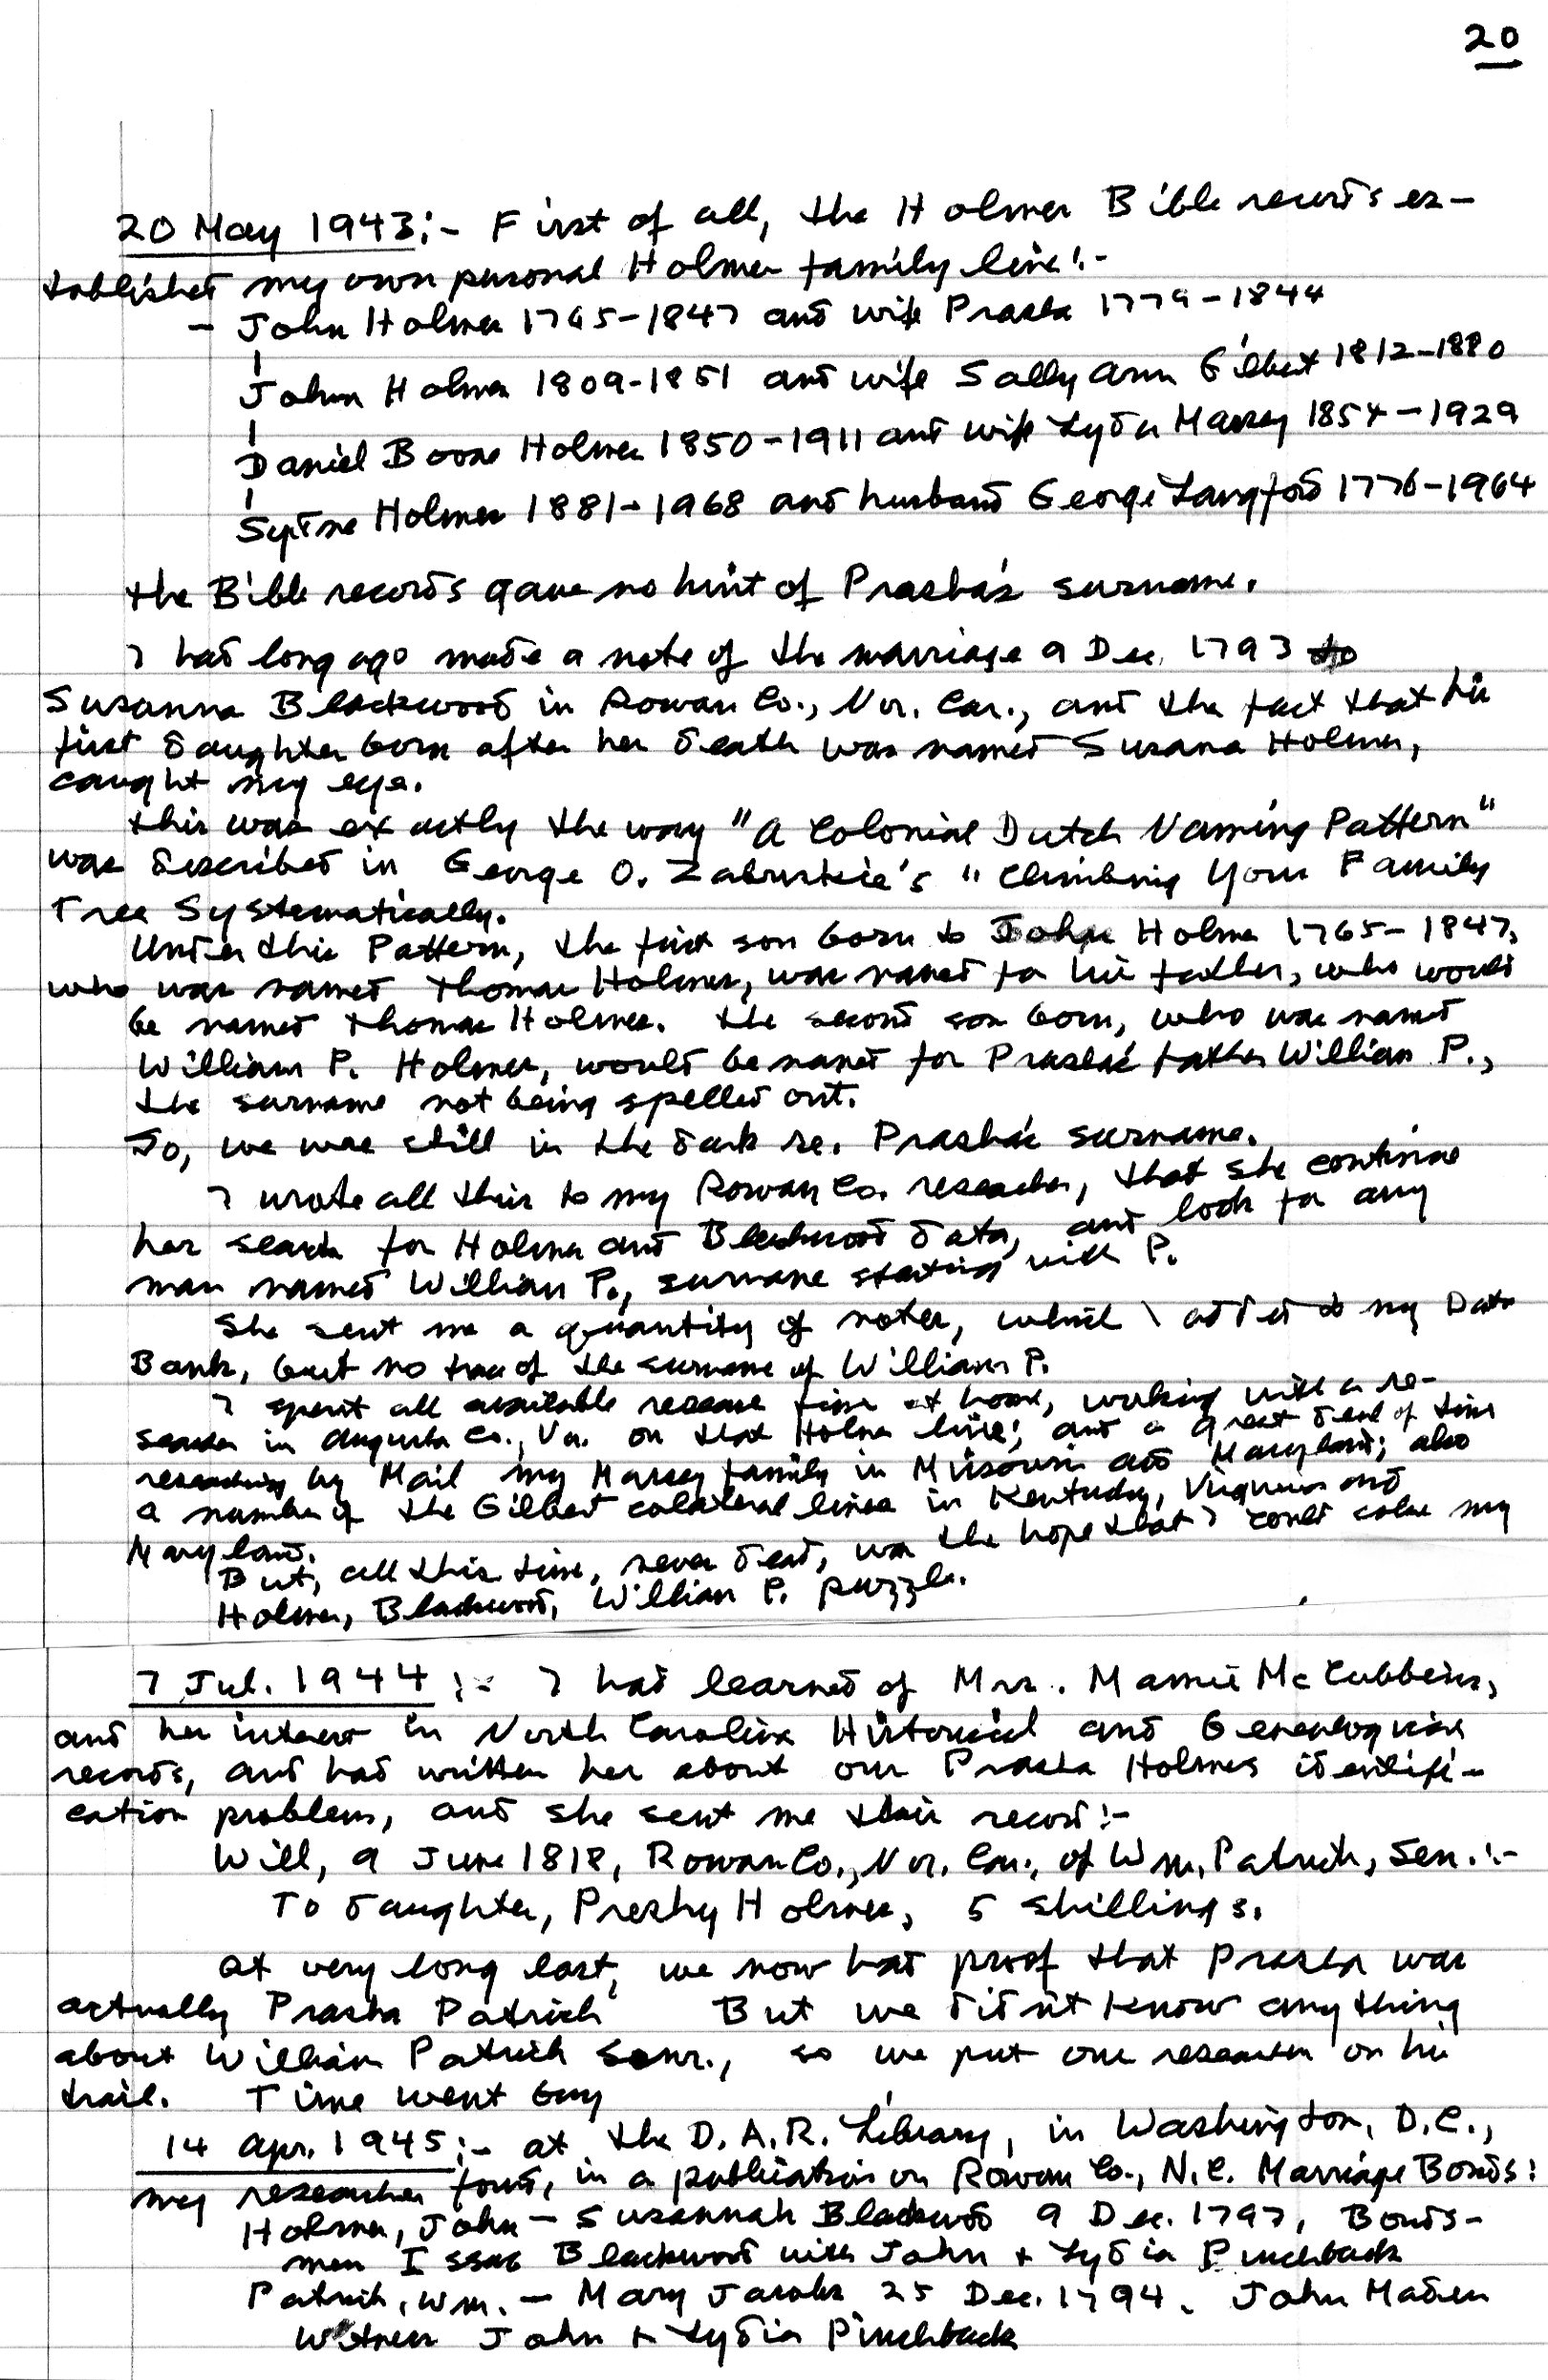 20
20 May 1943:- First of all, the Holmes Bible records es-
tablished my own personal Holmes family line:-
- John Holmes 1765-1847 and wife Prasha 1779-1844
John Holmes 1809-1851 and wife Sally Ann Gilbert 1812-1880
Daniel Boone Holmes 1850-1911 and wife Lydia Massey 1854-1929
Sydne Holmes 1881-1968 and husband George Langford 1776-1964
The Bible records gave no hint of Prasha's surname.
I had long ago made a note of the marriage 9 Dec. 1793 to
Susanna Blackwood in Rowan Co., Nor. Car., and the fact that his
first daughter born after her death was named Susana Holmes,
caught my eye.
This was exactly the way "A Colonial Dutch Naming Pattern"
was described in George O. Zabriskie's "Climbing Your Family
Tree Systematically.
Under this Pattern, the first son born to John Holmes 1765-1847,
who was named Thomas Holmes, was named for his father, who would
be named Thomas Holmes. The second son born, who was named
William P. Holmes, would be named for Prasha's father William P.,
the surname not being spelled out.
So, we were still in the dark re. Prasha's surname.
I wrote all this to my Rowan Co. researcher, that she continue
her search for Holmes and Blackwood data, and look for any
man named William P., surname starting with P.
She sent me a quantity of notes, which I added to my Data
Bank, but no trace of the surname of William P.
I spent all available research time at home, working with a re-
searcher in Augusta Co., Va. on that Holmes line; and a great deal of time
researching by Mail my Massey family in Missouri and Maryland; also
a number of the Gilbert colateral lines in Kentucky, Virginia and
Maryland.
But, all this time, never dead, was the hope that I could solve my
Holmes, Blackwood, William P. puzzle.
7 Jul. 1944:- I had learned of Mrs. Mamie McCubbins,
and her interest in North Carolina Historical and Genealogical
records, and had written her about our Prasha Holmes identifi-
cation problem, and she sent me their record:-
Will, 9 June 1818, Rowan Co., Nor. Car., of Wm. Patrick, Sen.:-
To daughter, Preshy Holmes, 5 shillings.
At very long last, we now had proof that Prasha was
actually Prasha Patrick But we didn't know anything
about William Patrick Senr., so we put our researcher on his
trail. Time went by
14 Apr. 1945:- at the D.A.R. Library, in Washington, D.C.,
my researcher found, in a publication on Rowan Co., N.C. Marriage Bonds:
Holmes, John - Susannah Blackwood 9 Dec. 1797, Bonds-
men Issac Blackwood with John + Lydia Pinchback
Patrick, Wm. - Mary Jacobs 25 Dec. 1794. John Maden
Witness John + Lydia Pinchback